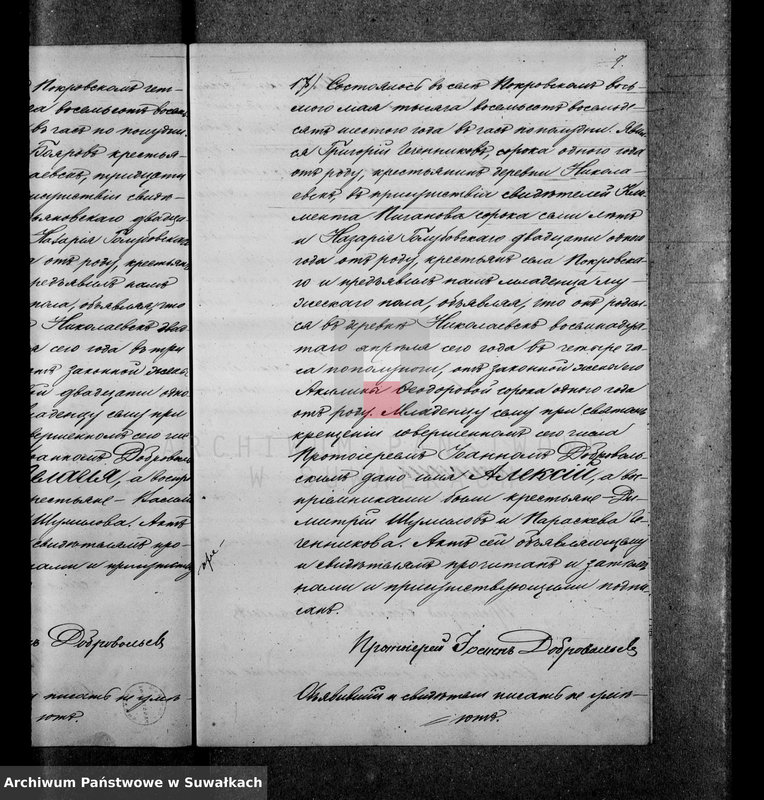 Покровскомъ
восемьсотъ восемь
въ часъ по полудни.
Бояровъ крестья-
тридцати
двадца
Назарія Голубовскаго
отъ роду, крестьянъ
предъявилъ намъ
пола, объявляя, что
Николаевскѣ
сего года въ три
законной жены
двадцати одно
младенцу сему при
совершенномъ сего чи
Добровол
а воспр
крестьяне
Шумилова. Актъ
свидѣтелямъ про-
нами и присутству
Добровольскій
писать не умѣ-
ютъ.
9.
17/. Состоялось въ селѣ Покровскомъ вось-
мого мая тысяча восемьсотъ восемьде-
сятъ шестого года въ часъ по полудни. Явил
ся Григорій сорока одного года
отъ роду, крестьянинъ деревни Никола-
евскъ, въ присутствіи свидѣтелей Кли-
мента Пиганова сорока семи лѣтъ
и Назарія Голубовскаго двадцати одного
года отъ роду, крестьянъ села Покровска-
го и предъявилъ намъ младенца му-
жескаго пола, объявляя, что онъ родил-
ся въ деревнѣ Николаевскѣ восемнадца-
таго апрѣля сего года въ четыре ча-
са по полудни, отъ законной жены его
Акилины Ѳеодоровой сорока одного года
отъ роду. Младенцу сему при святомъ
крещеніи совершенномъ сего числа
Протоіереемъ Іоанномъ Доброволь-
скимъ дано имя Алексій, а вос-
пріемниками были крестьяне Ди-
митрій Шумиловъ и Параскева
Актъ сей объявляющему
и свидѣтелямъ прочитанъ и затѣмъ
нами и присутствующими подпи-
санъ.
Протоіерей Іоаннъ Добровольскій
Объявившій и свидѣтели писать не умѣ-
ютъ.
ARCHIWUM PAŃSTWOWE
W SUWAŁKACH
Archiwum Państwowe w Suwałkach